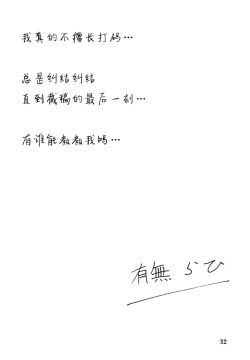 我真的不擅长打码…
总是纠结纠结
直到截稿的最后一刻…
有谁能教教我吗…
有無 らひ
32